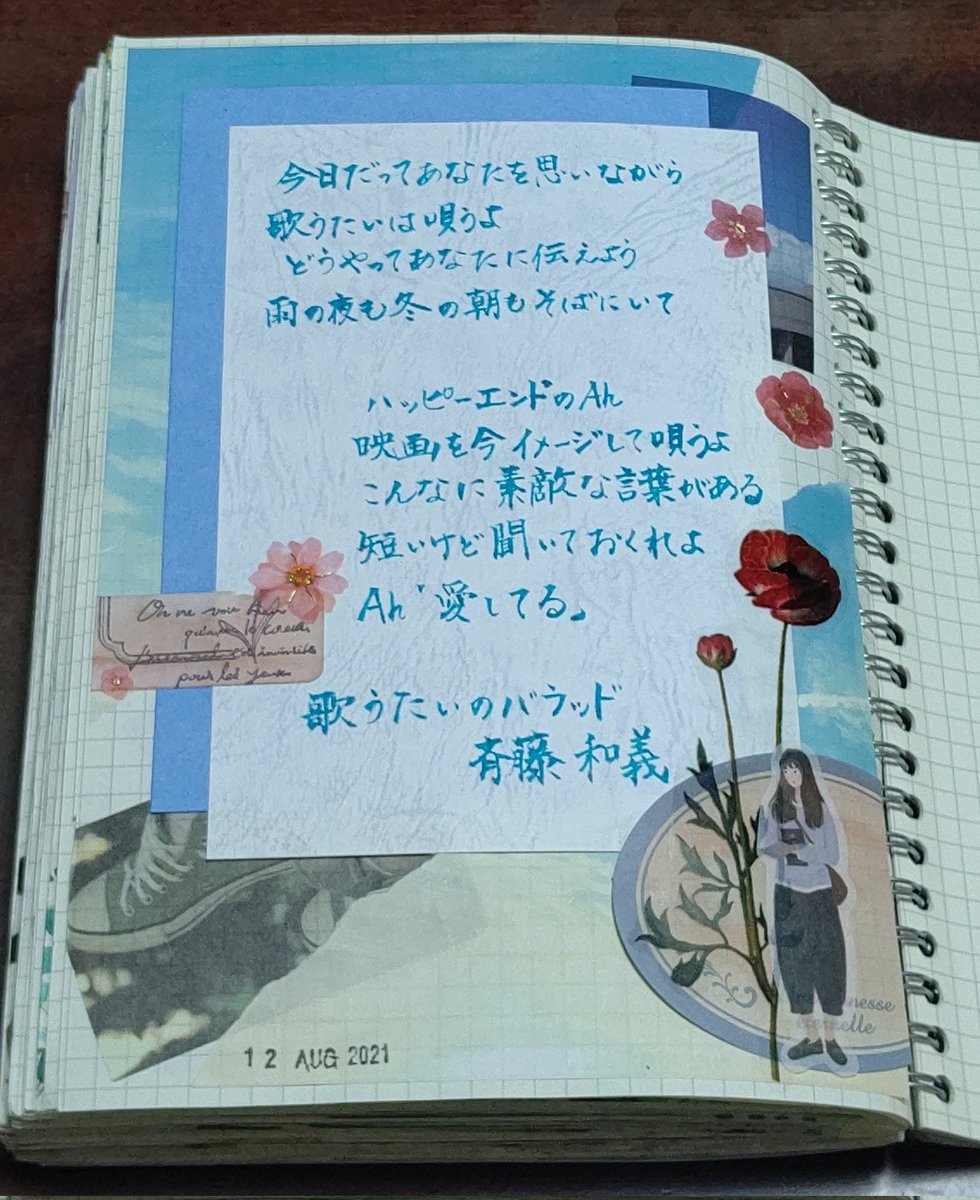 今日だってあなたを思いながら
歌うたいは唄うよ
どうやってあなたに伝えよう
雨の夜も冬の朝もそばにいて
ハッピーエンドのAh
映画を今イメージして唄うよ
こんなに素敵な言葉がある
短いけど聞いておくれよ
Ah「愛してる」
On ne voit bien
qu'avec le
pour les yeux
歌うたいのバラッド
斉藤和義
12 AUG 2021